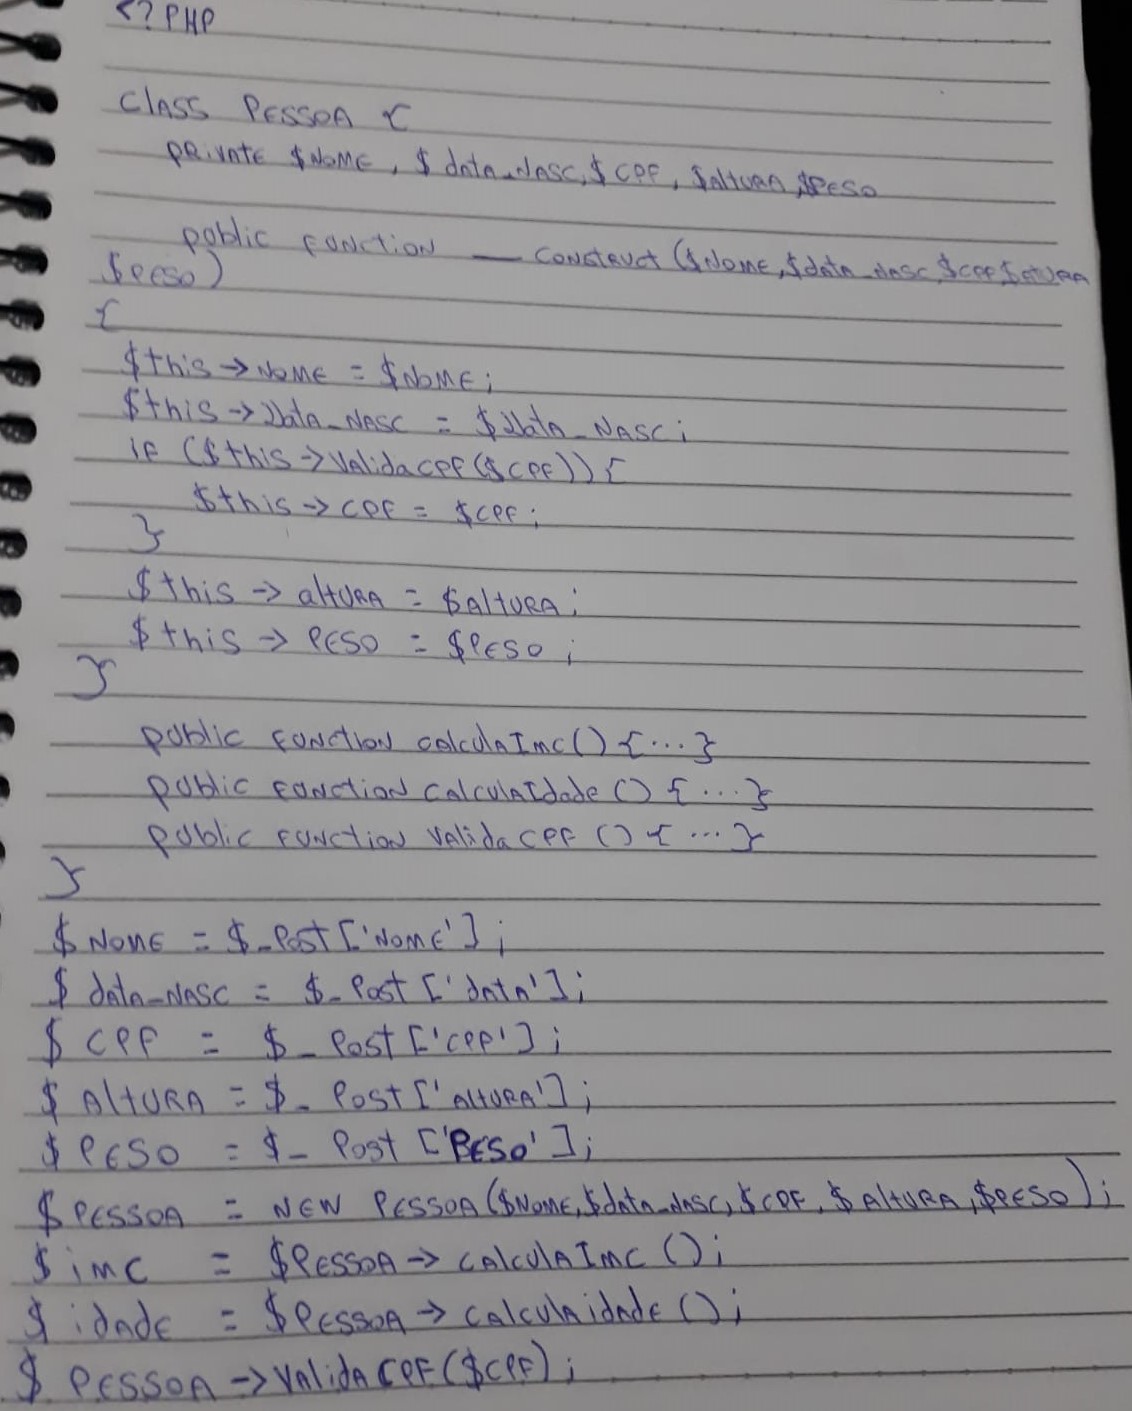 <?PHP
class Pessoa {
private $nome, $data_nasc, $cpf, $altura, $peso
public function __construct($nome, $data_nasc, $cpf $atura
$peso)
{
$this->nome = $nome;
$this->Data_nasc = $Data_nasc;
if ($this->validacpf($cpf)) {
$this->cpf = $cpf;
}
$this->altura = $altura;
$this->peso = $peso;
}
public function calculaImc() {...}
public function calculaIdade() {...}
public function validacpf() {...}
}
$nome = $_Post['nome'];
$data_nasc = $_Post['data'];
$cpf = $_Post['cpf'];
$altura = $_Post['altura'];
$peso = $_Post['Peso'];
$pessoa = new Pessoa($nome, $data_nasc, $cpf, $altura, $peso);
$imc = $pessoa->calculaImc();
$idade = $pessoa->calculaidade();
$pessoa->validacpf($cpf);